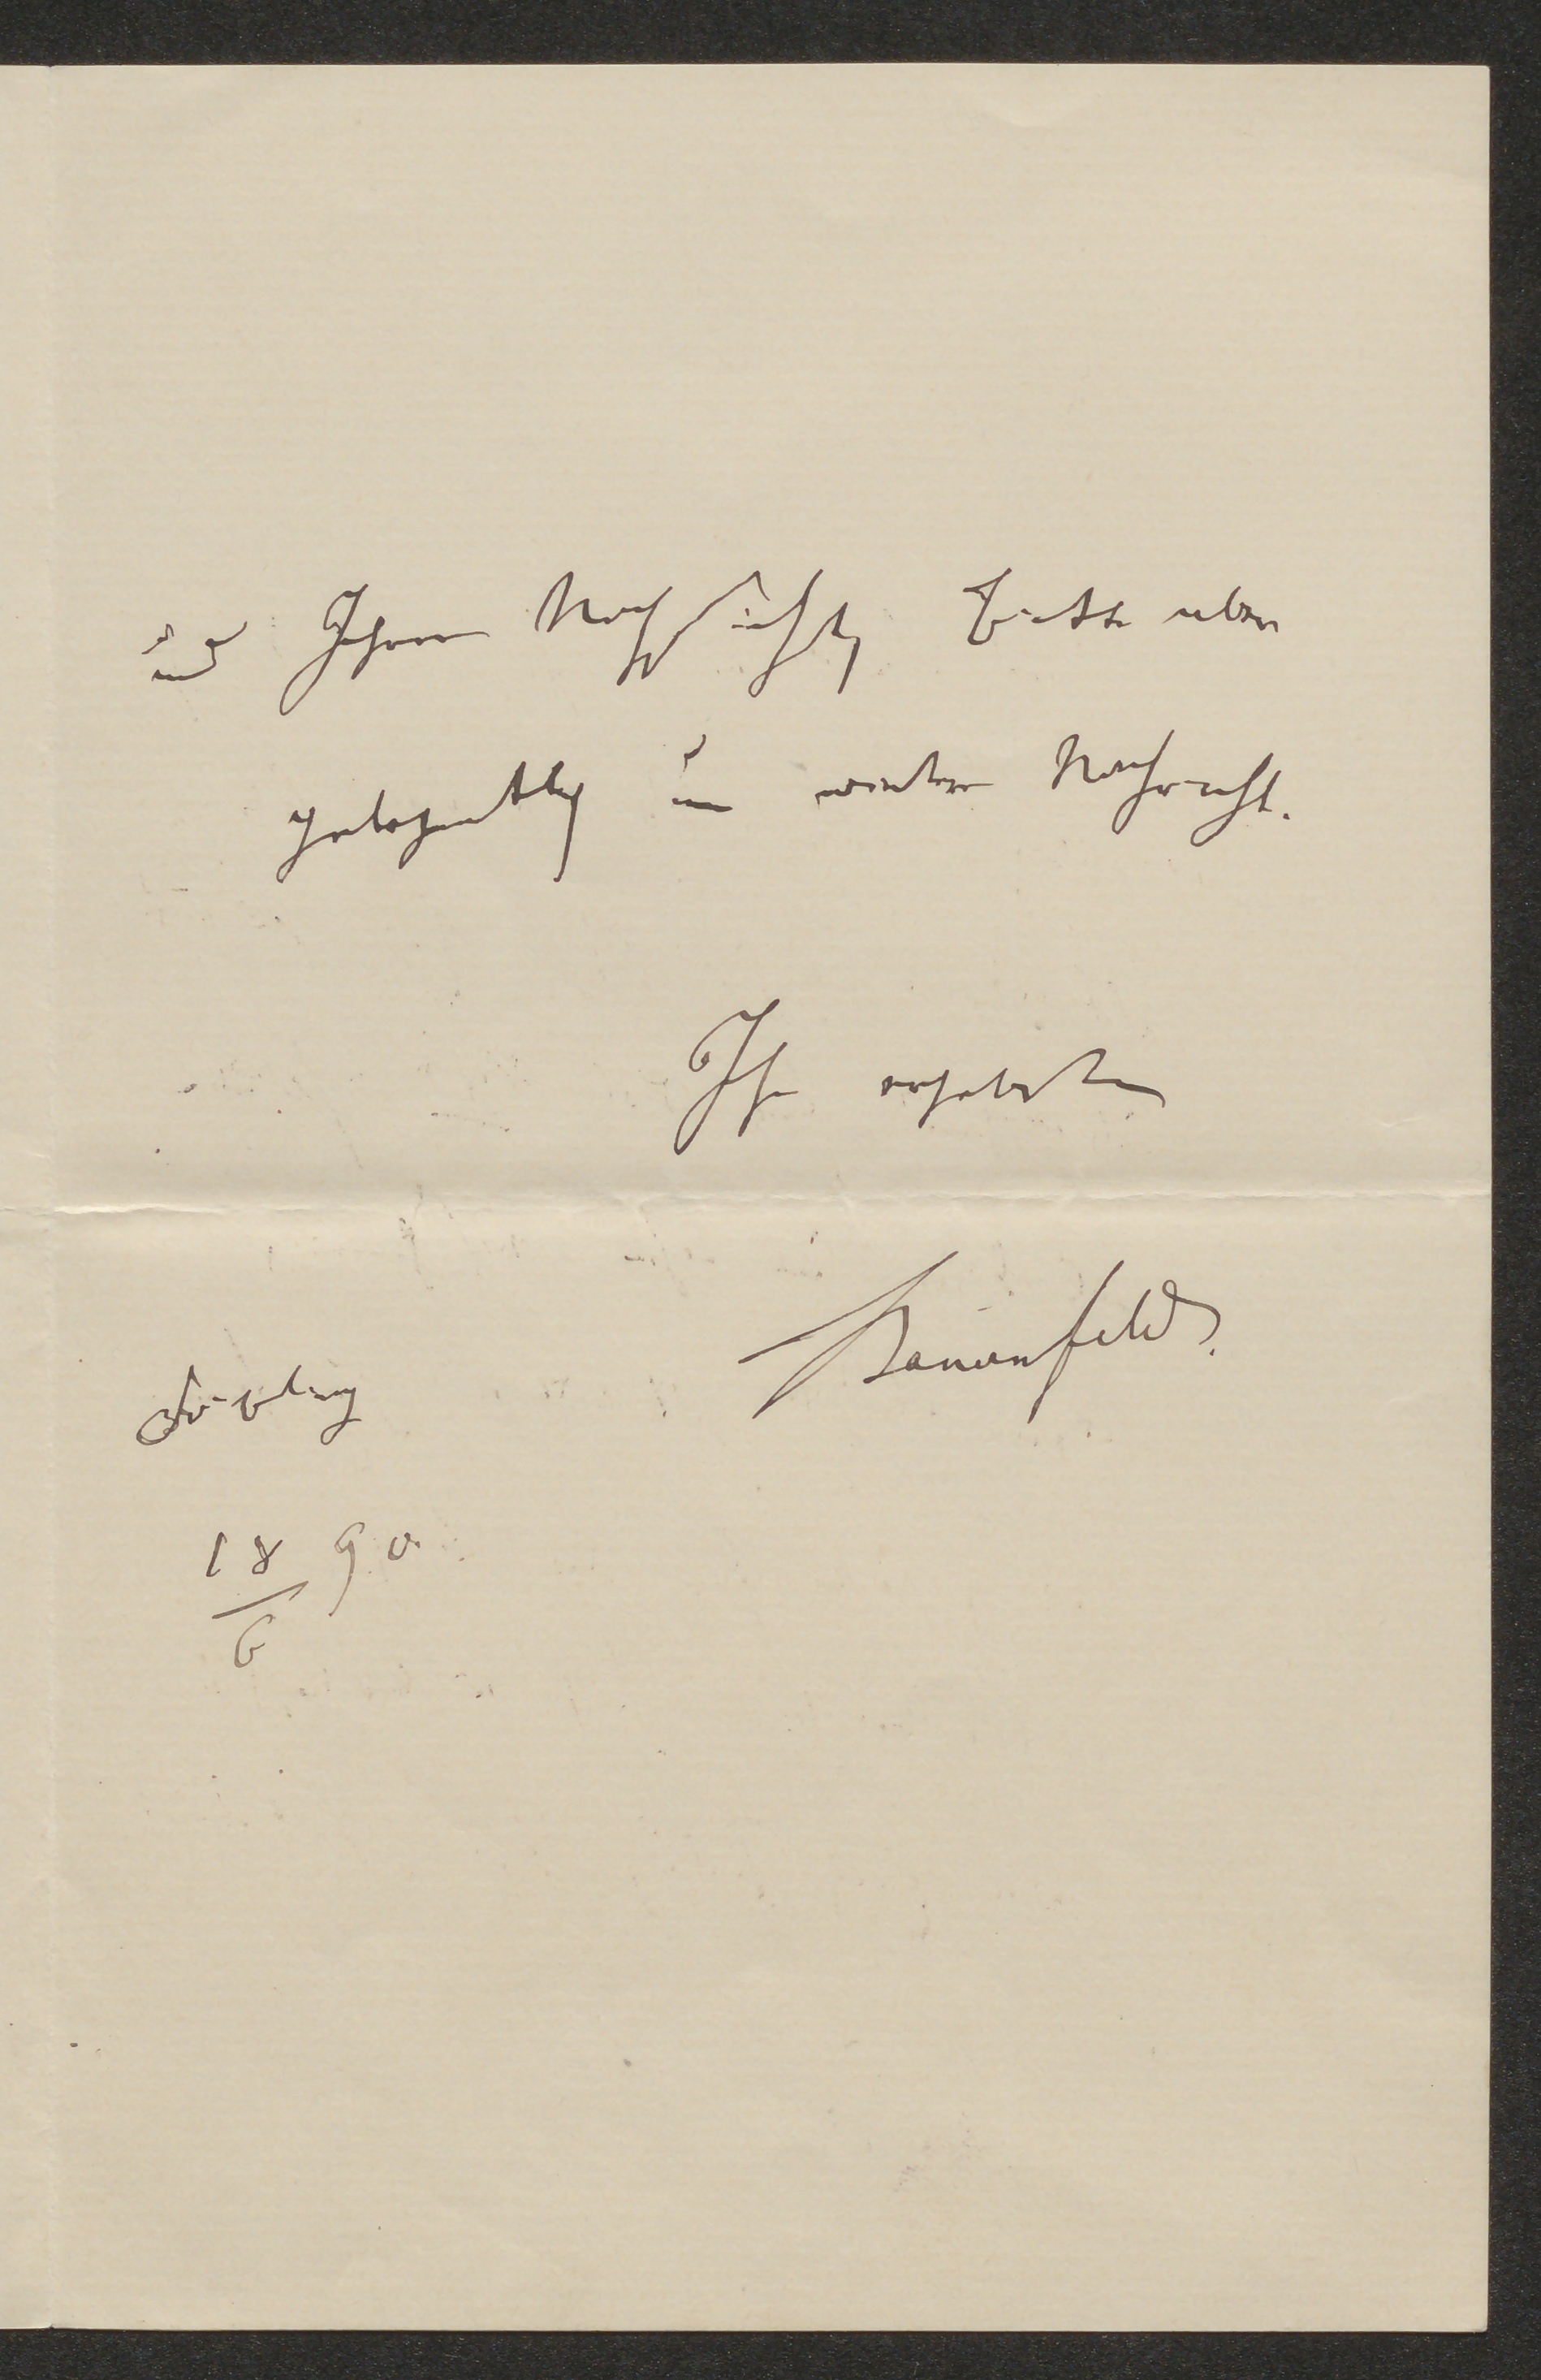 und Ihrem Nachsicht, bitte aber
gelegentlich um weitere Nachricht.
Ihr ergebenster
Bauernfeld.
Döbling
18/6 90.